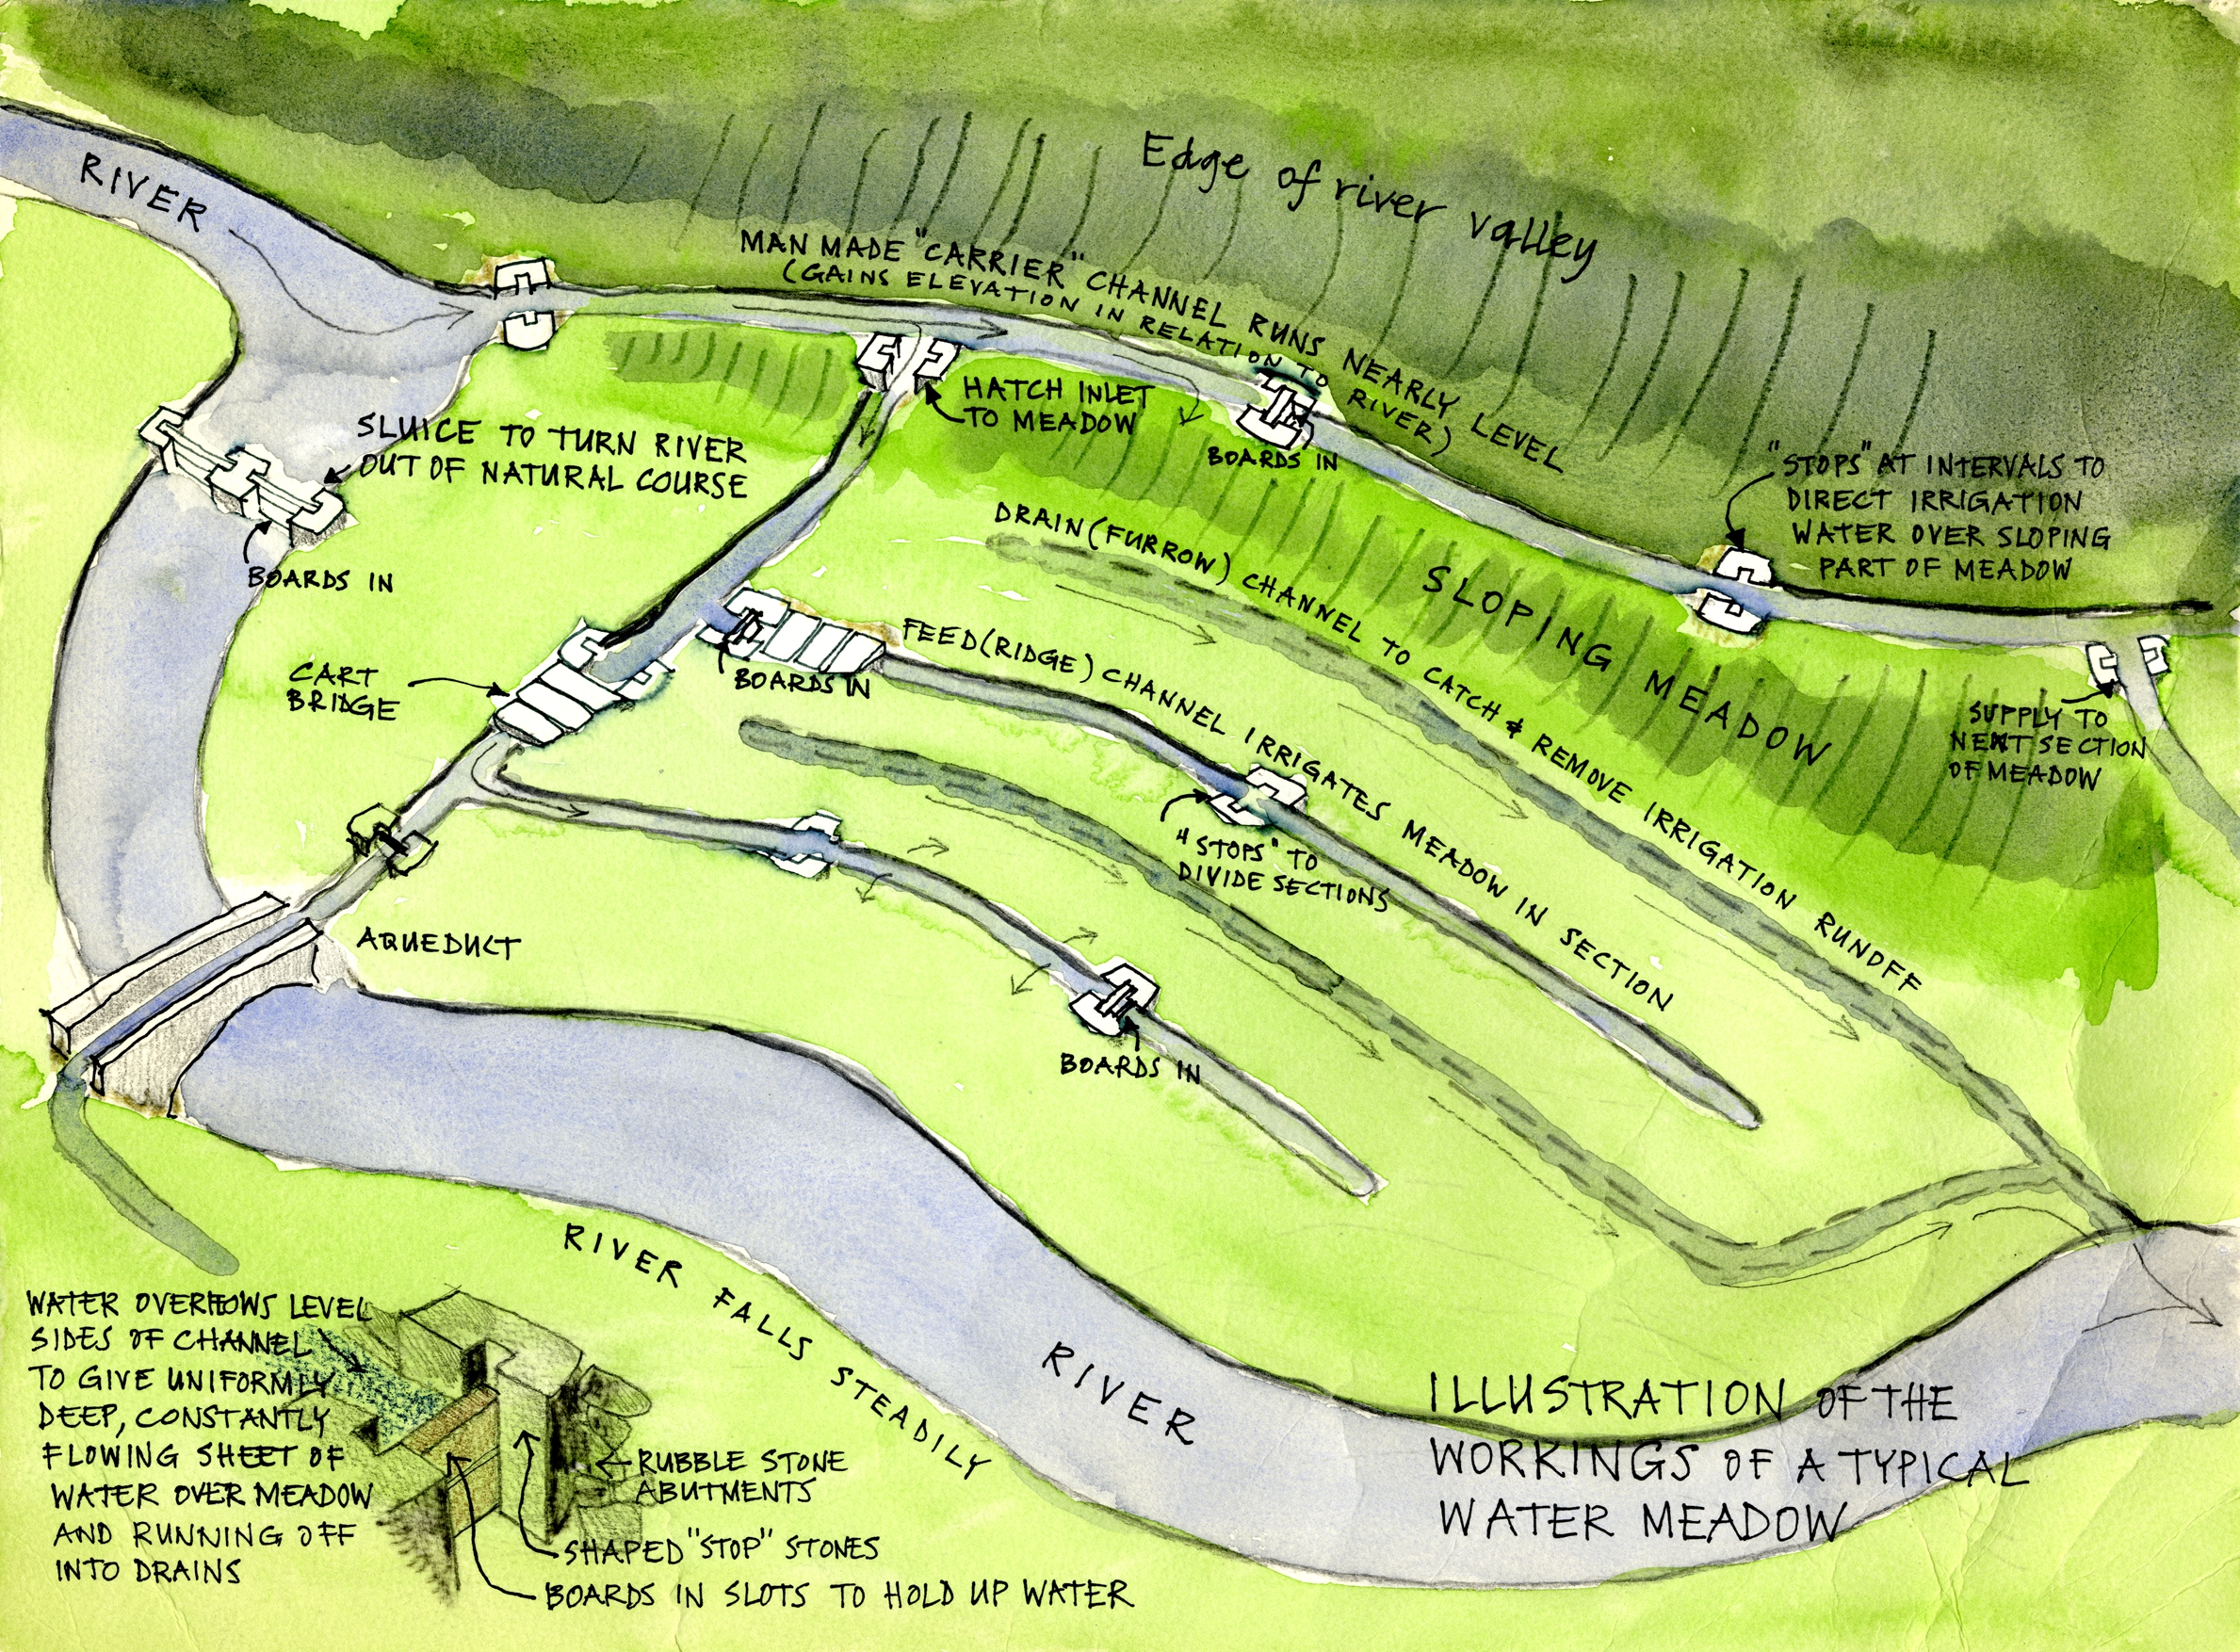 Edge of river valley
RIVER
MAN MADE "CARRIER" CHANNEL RUNS NEARLY LEVEL
(GAINS ELEVATION IN RELATION TO RIVER)
HATCH INLET
TO MEADOW
BOARDS IN
SLUICE TO TURN RIVER
OUT OF NATURAL COURSE
BOARDS IN
"STOPS" AT INTERVALS TO
DIRECT IRRIGATION
WATER OVER SLOPING
PART OF MEADOW
DRAIN (FURROW) CHANNEL TO CATCH & REMOVE IRRIGATION RUNOFF
SLOPING MEADOW
FEED (RIDGE) CHANNEL IRRIGATES MEADOW IN SECTION
BOARDS IN
CART
BRIDGE
SUPPLY TO
NEXT SECTION
OF MEADOW
"STOPS" TO
DIVIDE SECTIONS
AQUEDUCT
BOARDS IN
RIVER FALLS STEADILY
RIVER
WATER OVERFLOWS LEVEL
SIDES OF CHANNEL
TO GIVE UNIFORMLY
DEEP, CONSTANTLY
FLOWING SHEET OF
WATER OVER MEADOW
AND RUNNING OFF
INTO DRAINS
RUBBLE STONE
ABUTMENTS
SHAPED "STOP" STONES
BOARDS IN SLOTS TO HOLD UP WATER
ILLUSTRATION OF THE
WORKINGS OF A TYPICAL
WATER MEADOW